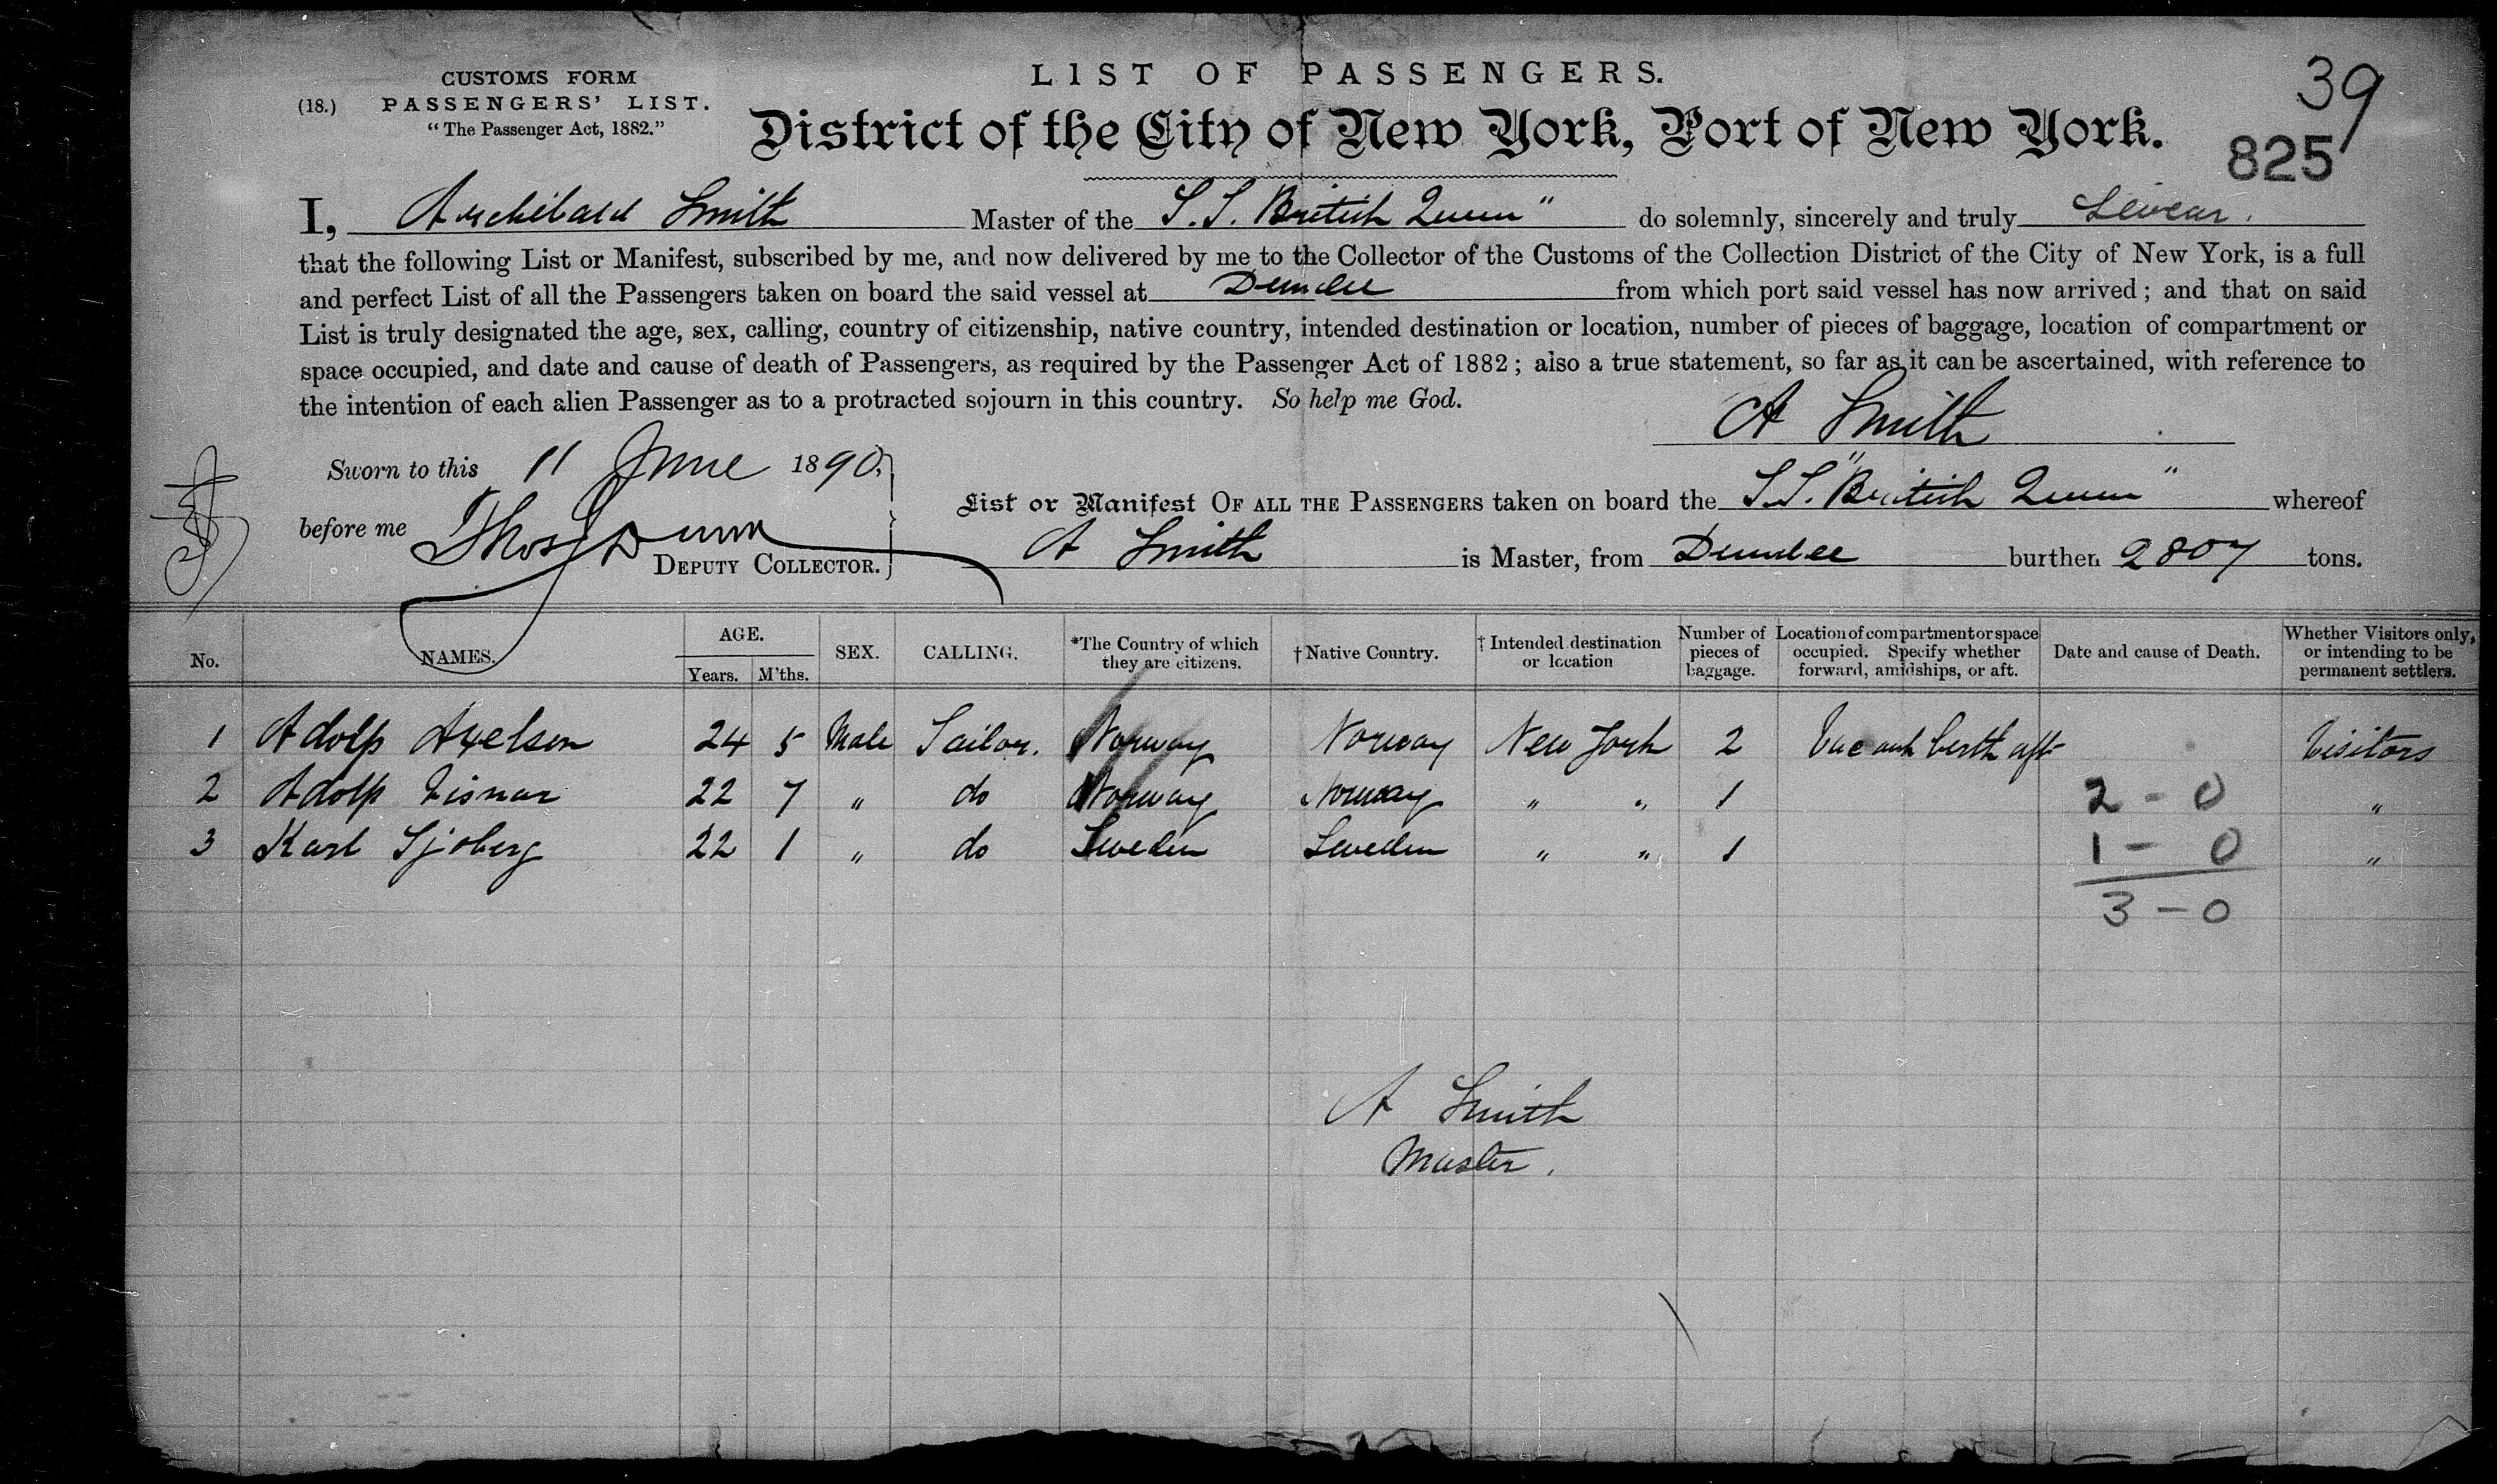 CUSTOMS FORM
(18.) PASSENGERS' LIST.
"The Passenger Act, 1882."
LIST OF PASSENGERS.
District of the City of New York, Port of New York.
39
825
I, Archibald Smith Master of the S.S. British Queen" do solemnly, sincerely and truly Swear.
that the following List or Manifest, subscribed by me, and now delivered by me to the Collector of the Customs of the Collection District of the City of New York, is a full
and perfect List of all the Passengers taken on board the said vessel at Dundee from which port said vessel has now arrived; and that on said
List is truly designated the age, sex, calling, country of citizenship, native country, intended destination or location, number of pieces of baggage, location of compartment or
space occupied, and date and cause of death of Passengers, as required by the Passenger Act of 1882; also a true statement, so far as it can be ascertained, with reference to
the intention of each alien Passenger as to a protracted sojourn in this country. So help me God.
A Smith
Sworn to this 11 June 1890.
before me Thos Dunn
DEPUTY COLLECTOR.
List or Manifest OF ALL THE PASSENGERS taken on board the S.S. "British Queen" whereof
A Smith is Master, from Dundee burthen 2807 tons.
No. NAMES. AGE. Years. M'ths. SEX. CALLING. *The Country of which they are citizens. †Native Country. †Intended destination or location Number of pieces of baggage. Location of compartment or space occupied. Specify whether forward, amidships, or aft. Date and cause of Death. Whether Visitors only, or intending to be permanent settlers.
1 Adolp Axelsen 24 5 Male Sailor. Norway Norway New York 2 berth aft Visitors
2 Adolp 22 7 " do Norway Norway " " 1 2 - 0 "
3 Karl Sjoberg 22 1 " do Sweden Sweden " " 1 1 - 0 "
3 - 0
A Smith
Master.